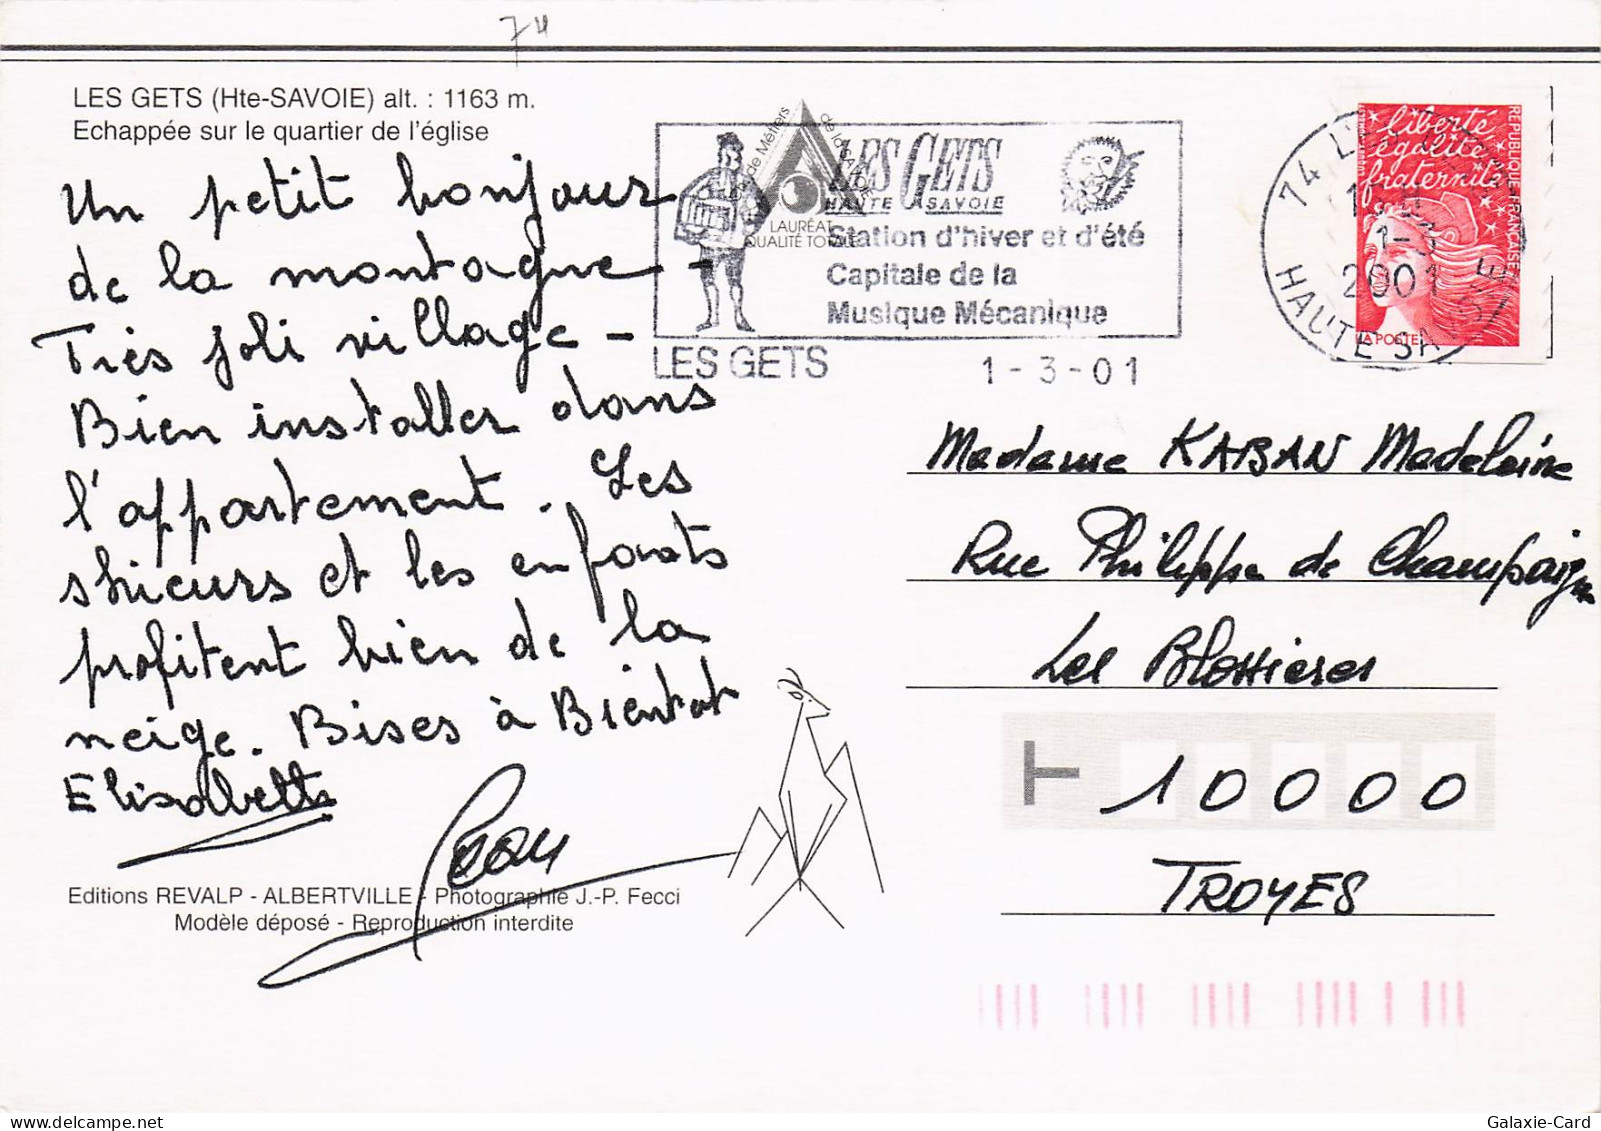 74
LES GETS (Hte-SAVOIE) alt. : 1163 m.
Echappée sur le quartier de l'église
Un petit bonjour
de la montagne -
Très joli village -
Bien installer dans
l'appartement. Les
skieurs et les enfants
profitent bien de la
neige. Bises à Bientot
Elisabette
Jean
Editions REVALP - ALBERTVILLE - Photographie J.-P. Fecci
Modèle déposé - Reproduction interdite
de Métiers
de la SAVOIE
LAURÉAT
QUALITÉ TOTALE
LES GETS
HAUTE SAVOIE
Station d'hiver et d'été
Capitale de la
Musique Mécanique
LES GETS
1-3-01
74
1-3
2001
HAUTE SAVOIE
liberté
égalité
fraternité
REPUBLIQUE FRANÇAISE
LA POSTE
Madame KABAN Madeleine
Rue Philippe de Champaigne
Les Blossieres
10000
TROYES
Galaxie-Card